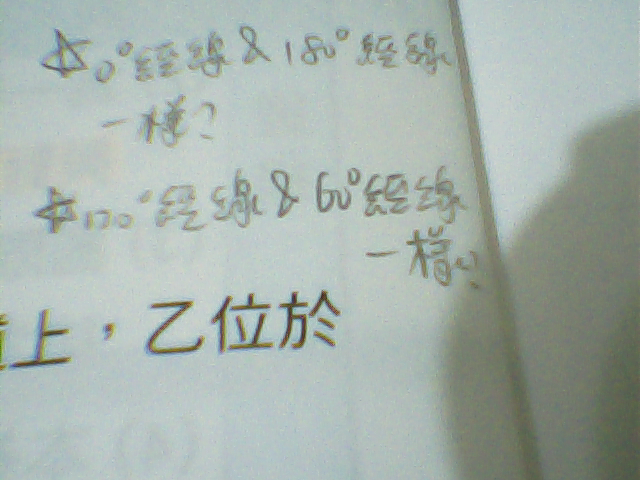 ☆0°經線 & 180°經線
一樣?
☆120°經線 & 60°經線
一樣?
上，乙位於